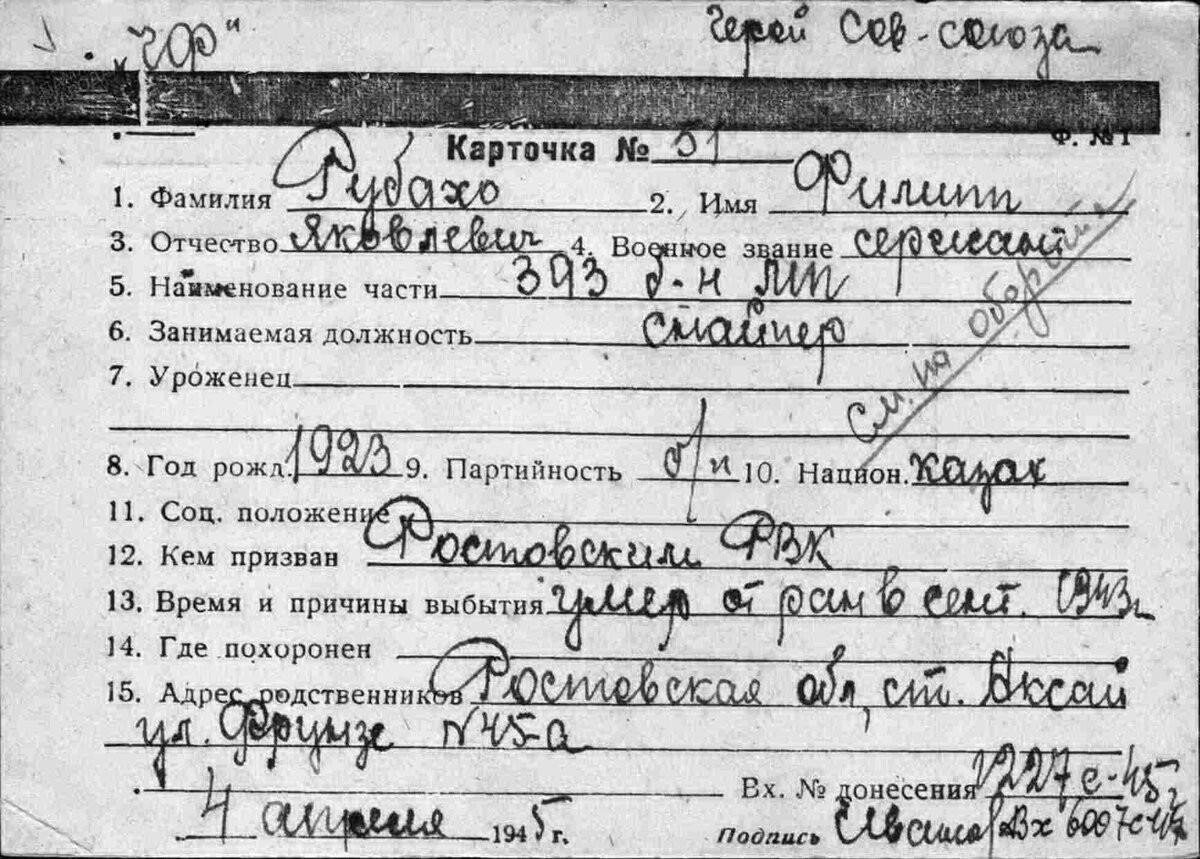 „ЧФ"
Герой Сов-союза
Ф. №1
Карточка № 51
1. Фамилия Рубахо 2. Имя Филипп
3. Отчество Яковлевич 4. Военное звание сержант
5. Наименование части 393 б-н МП
6. Занимаемая должность снайпер
См. на обороте
7. Уроженец
8. Год рожд. 1923 9. Партийность б/п 10. Национ. казак
11. Соц. положение
12. Кем призван Ростовским РВК
13. Время и причины выбытия умер от ран в сент. 1943г
14. Где похоронен
15. Адрес родственников Ростовская обл, ст. Аксай
ул. Фрунзе №45-а
Вх. № донесения 1227с-45г
4 апреля 1945 г. Подпись Вх 6007с